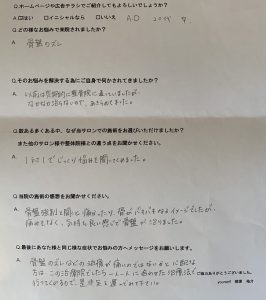 Q.ホームページや広告チラシでご紹介してもよろしいでしょうか？
A.☑はい □イニシャルなら □いいえ A.O
Q.どの様なお悩みで来院されましたか？
A. 骨盤のズレ
Q.そのお悩みを解決する為にご自身で何かされてきましたか？
A. 以前は定期的に整骨院に通っていましたが、
なかなか治らないので、あきらめてました。
Q.数ある多くある中、なぜ当サロンでの施術をお選びいただけましたか？
また他のサロン様や整体院様との違ってる点がありましたらお聞かせください。
A. 1対1でじっくり悩みを聞いてくれました。
Q.当院の施術の感想をお聞かせください。
A. 骨盤強制と聞くと痛かったり、骨がバキバキなるイメージでしたが、
痛みもなく、気持ち良い感じで骨盤が治りました。
Q.最後にあなた様と同じ様な症状でお悩みの方へメッセージをお願いします。
A. 骨盤のズレなどの治療が痛いのではないかと心配な
方は この治療院でしたら 一人一人に合わせた治療法で
行ってくれるので、是非足を運んでみて下さい。
ご協力ありがとうございました。
yourself